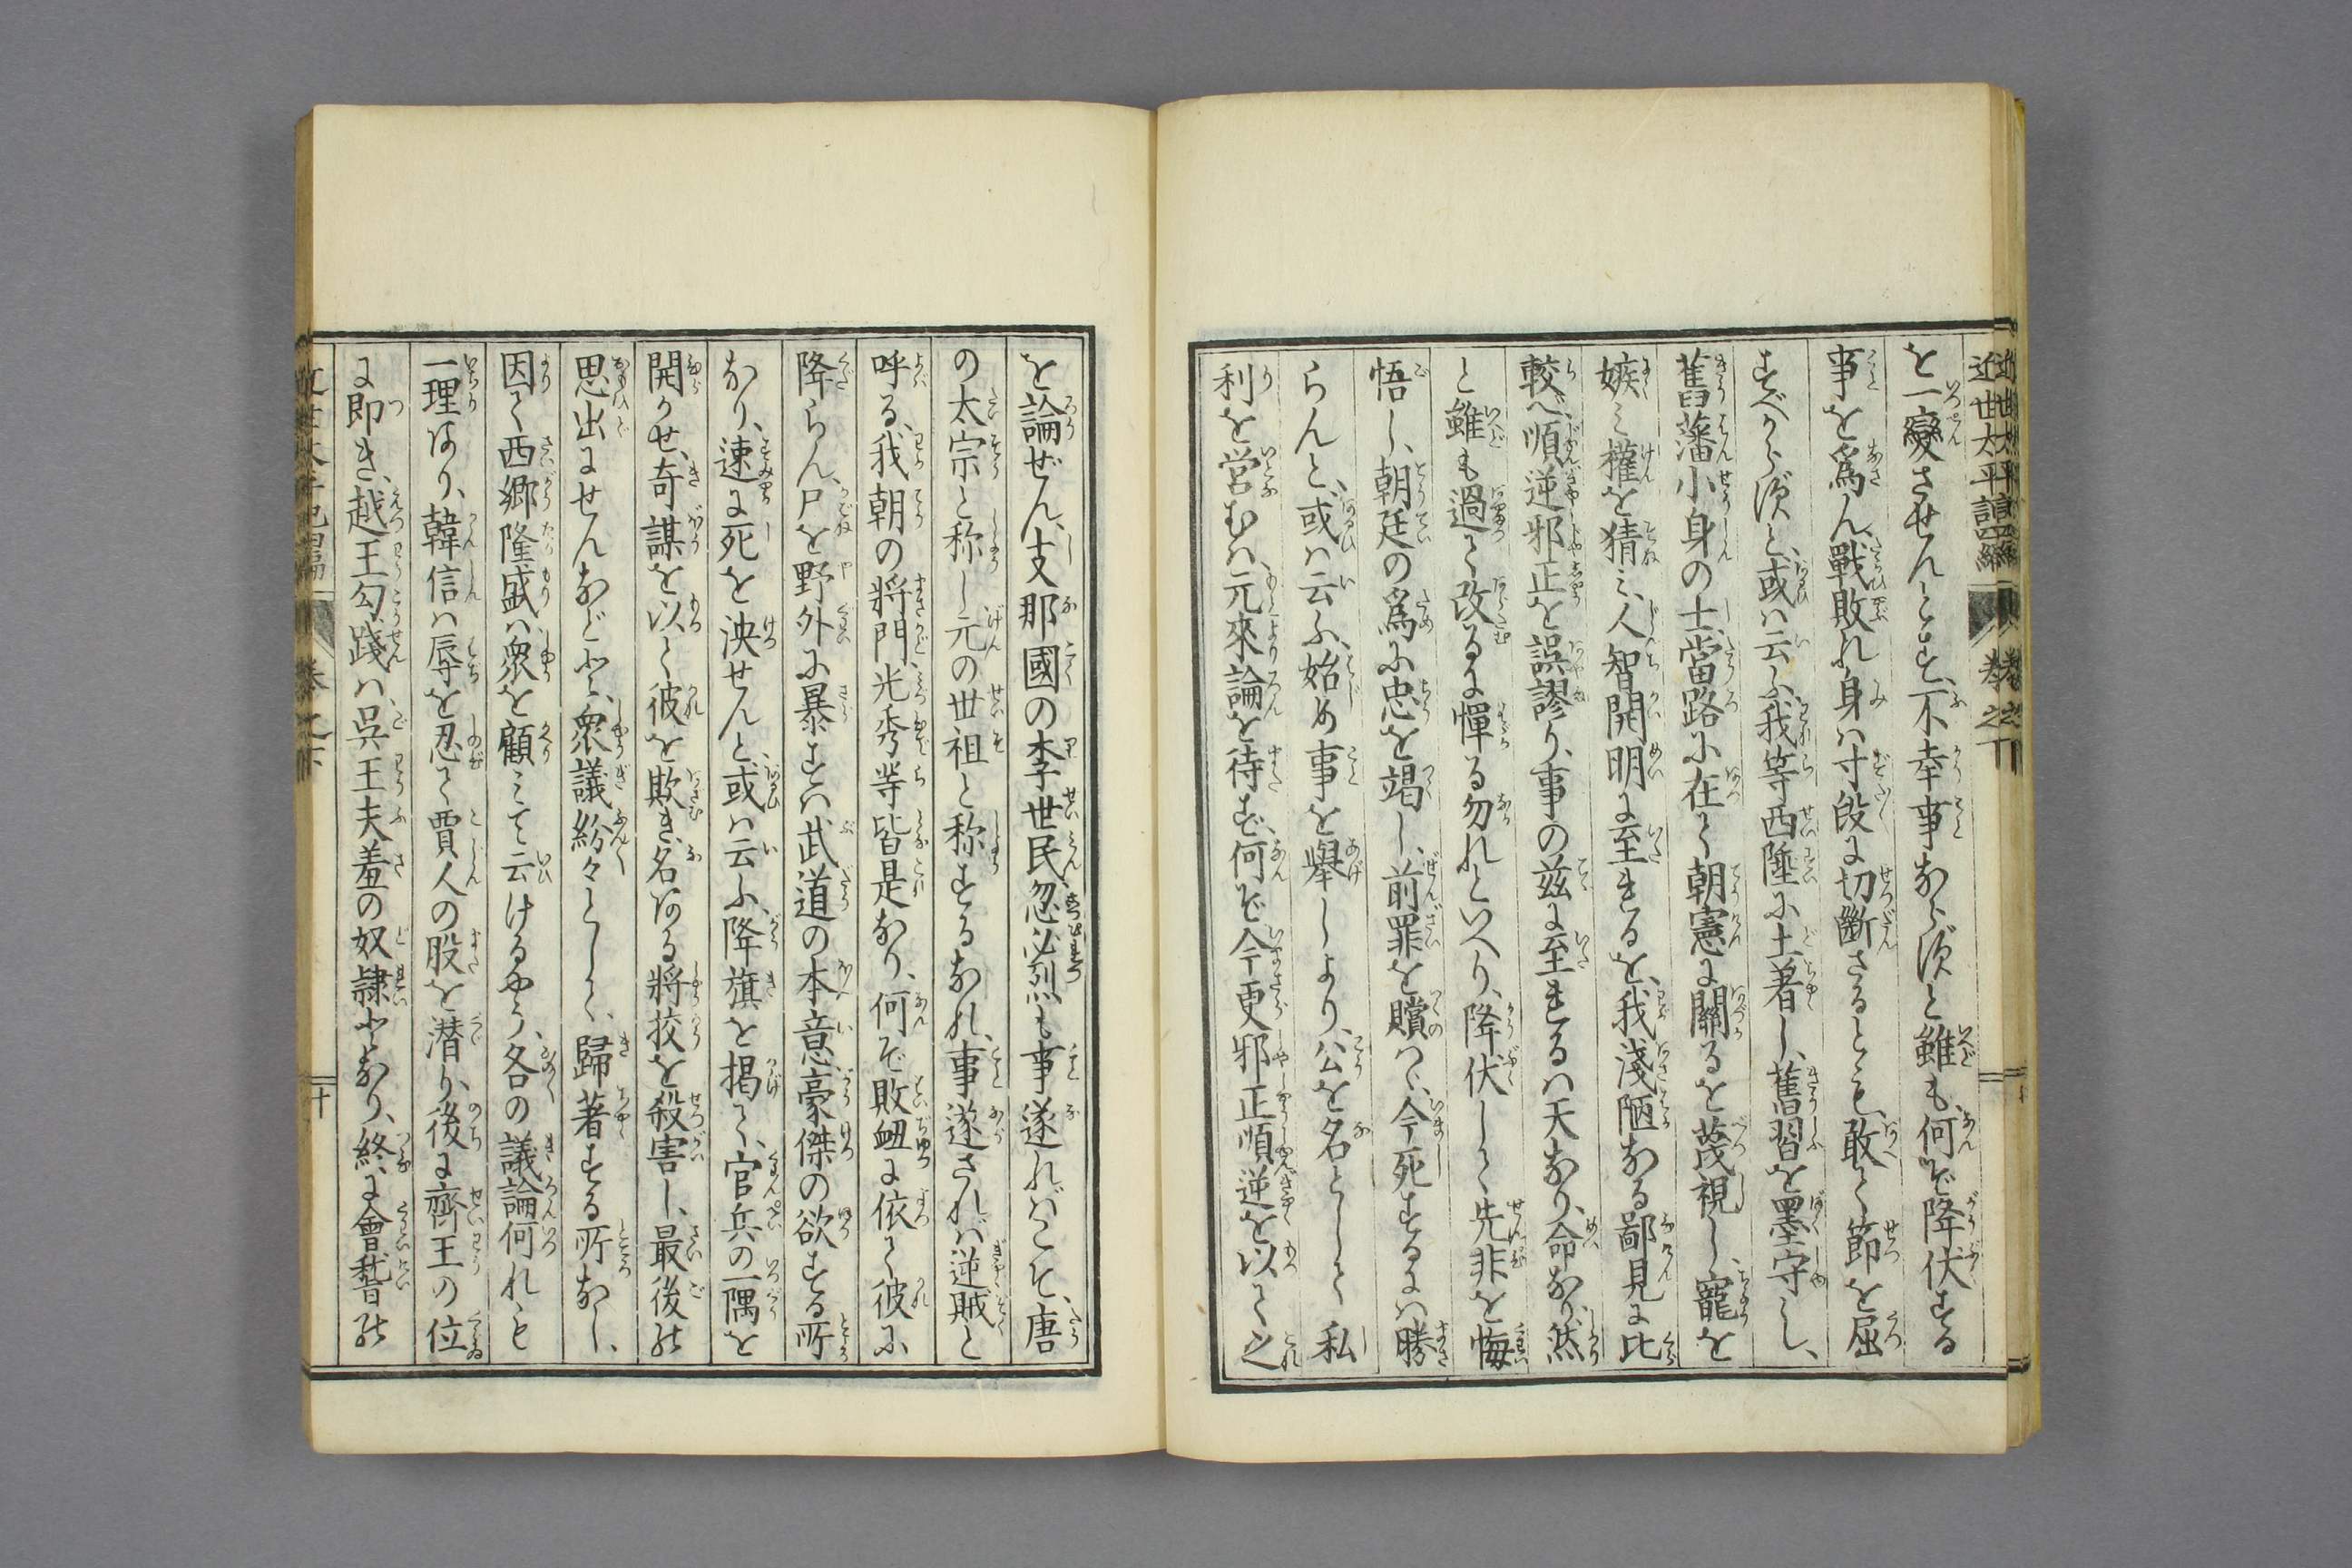 近世太平記四編 巻之下
を一變させんとす、不幸事ならずと雖も、何ぞ降伏する
事を為ん、戰敗れ身ハ寸段に切斷さるとも、敢て節を屈
すべからずと、或ハ云ふ、我等西陲に土著し、舊習を墨守し、
舊藩小身の士、當路に在て朝憲に關るを蔑視し、寵を
嫉み權を猜み、人智開明に至れるを、我淺陋なる鄙見に比
較べ、順逆邪正を誤謬り、事の茲に至れるハ天なり、命なり、然
と雖も過て改るに憚る勿れといへり、降伏して先非を悔
悟し、朝廷の為に忠を竭し、前罪を贖ハゞ、今死するにハ勝
らんと、或ハ云ふ、始め事を舉しより、公を名として私
利を営むハ、元來論を待ず、何ぞ今更邪正順逆を以て之
を論ぜん、支那國の李世民、忽必烈も事遂ればこそ、唐
の太宗と称し元の世祖と称するなれ、事遂ざれバ逆賊と
呼る、我朝の將門、光秀等皆是なり、何ぞ敗衂に依て彼に
降らん、尸を野外に暴すハ武道の本意、豪傑の欲する所
なり、速に死を決せんと、或ハ云ふ、降旗を揭て、官兵の一隅を
開かせ、奇謀を以て彼を欺き、名ある將校を殺害し、最後の
思出にせんなどと、衆議紛々として、歸著する所なし、
因て西郷隆盛ハ衆を顧ミて云けるやう、各の議論何れも
一理あり、韓信ハ辱を忍て賈人の股を潜り、後に齊王の位
に即き、越王勾踐ハ呉王夫羞の奴隷となり、終に會稽の
巻之下
十